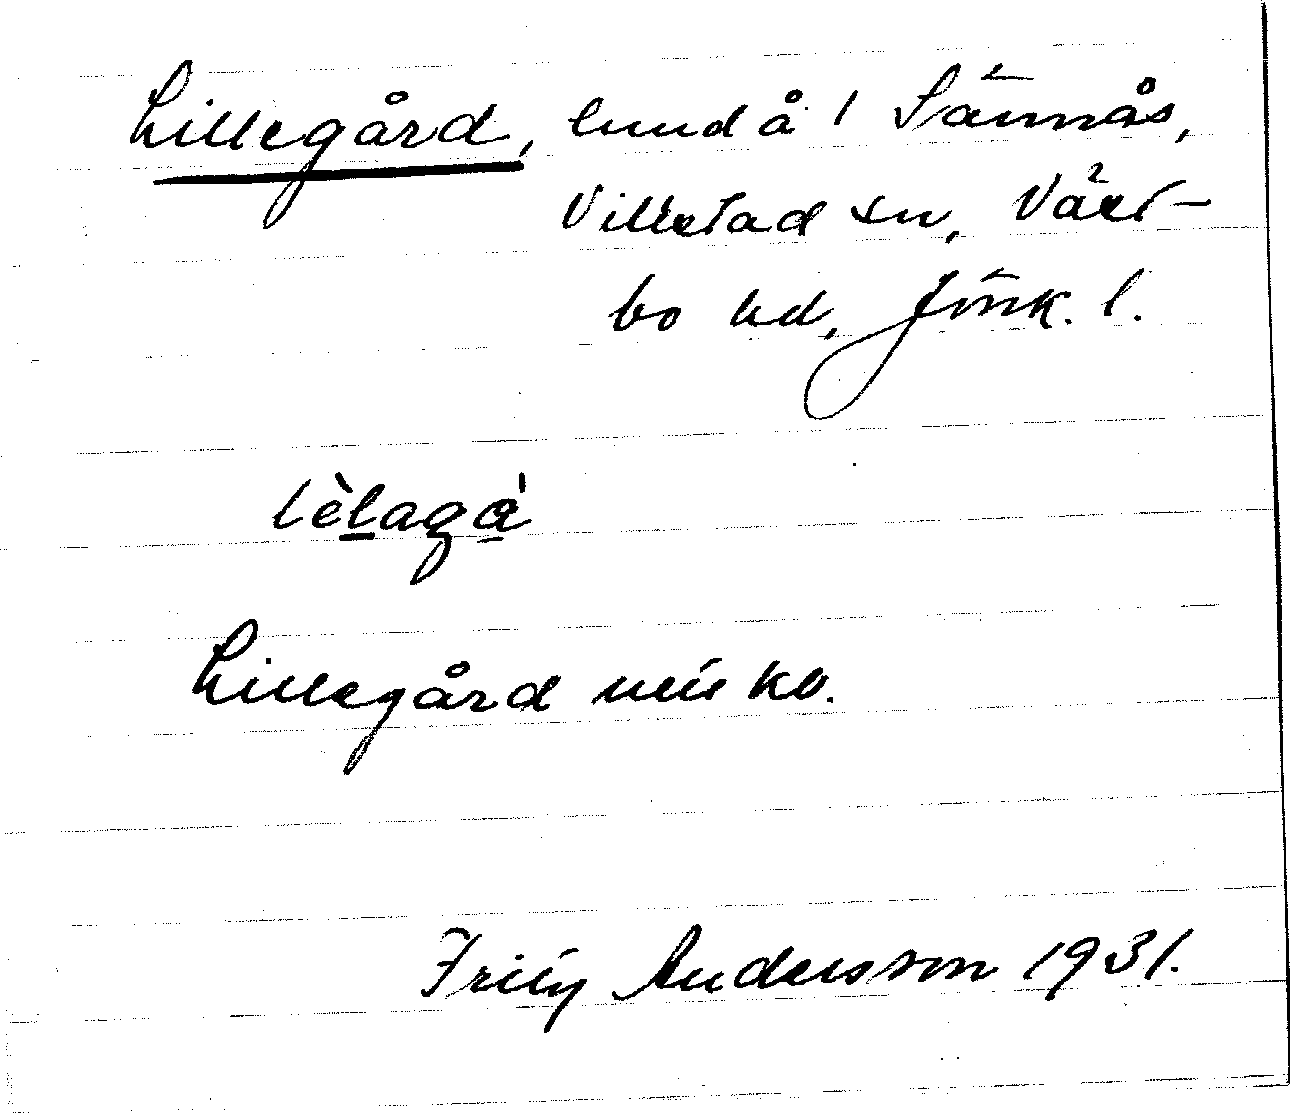 Lillegård, lundå i Sännås,
Villstad sn, Väst-
bo hd, Jönk. l.
lèlagȧ
Lillegård
Fritz Andersson 1931.